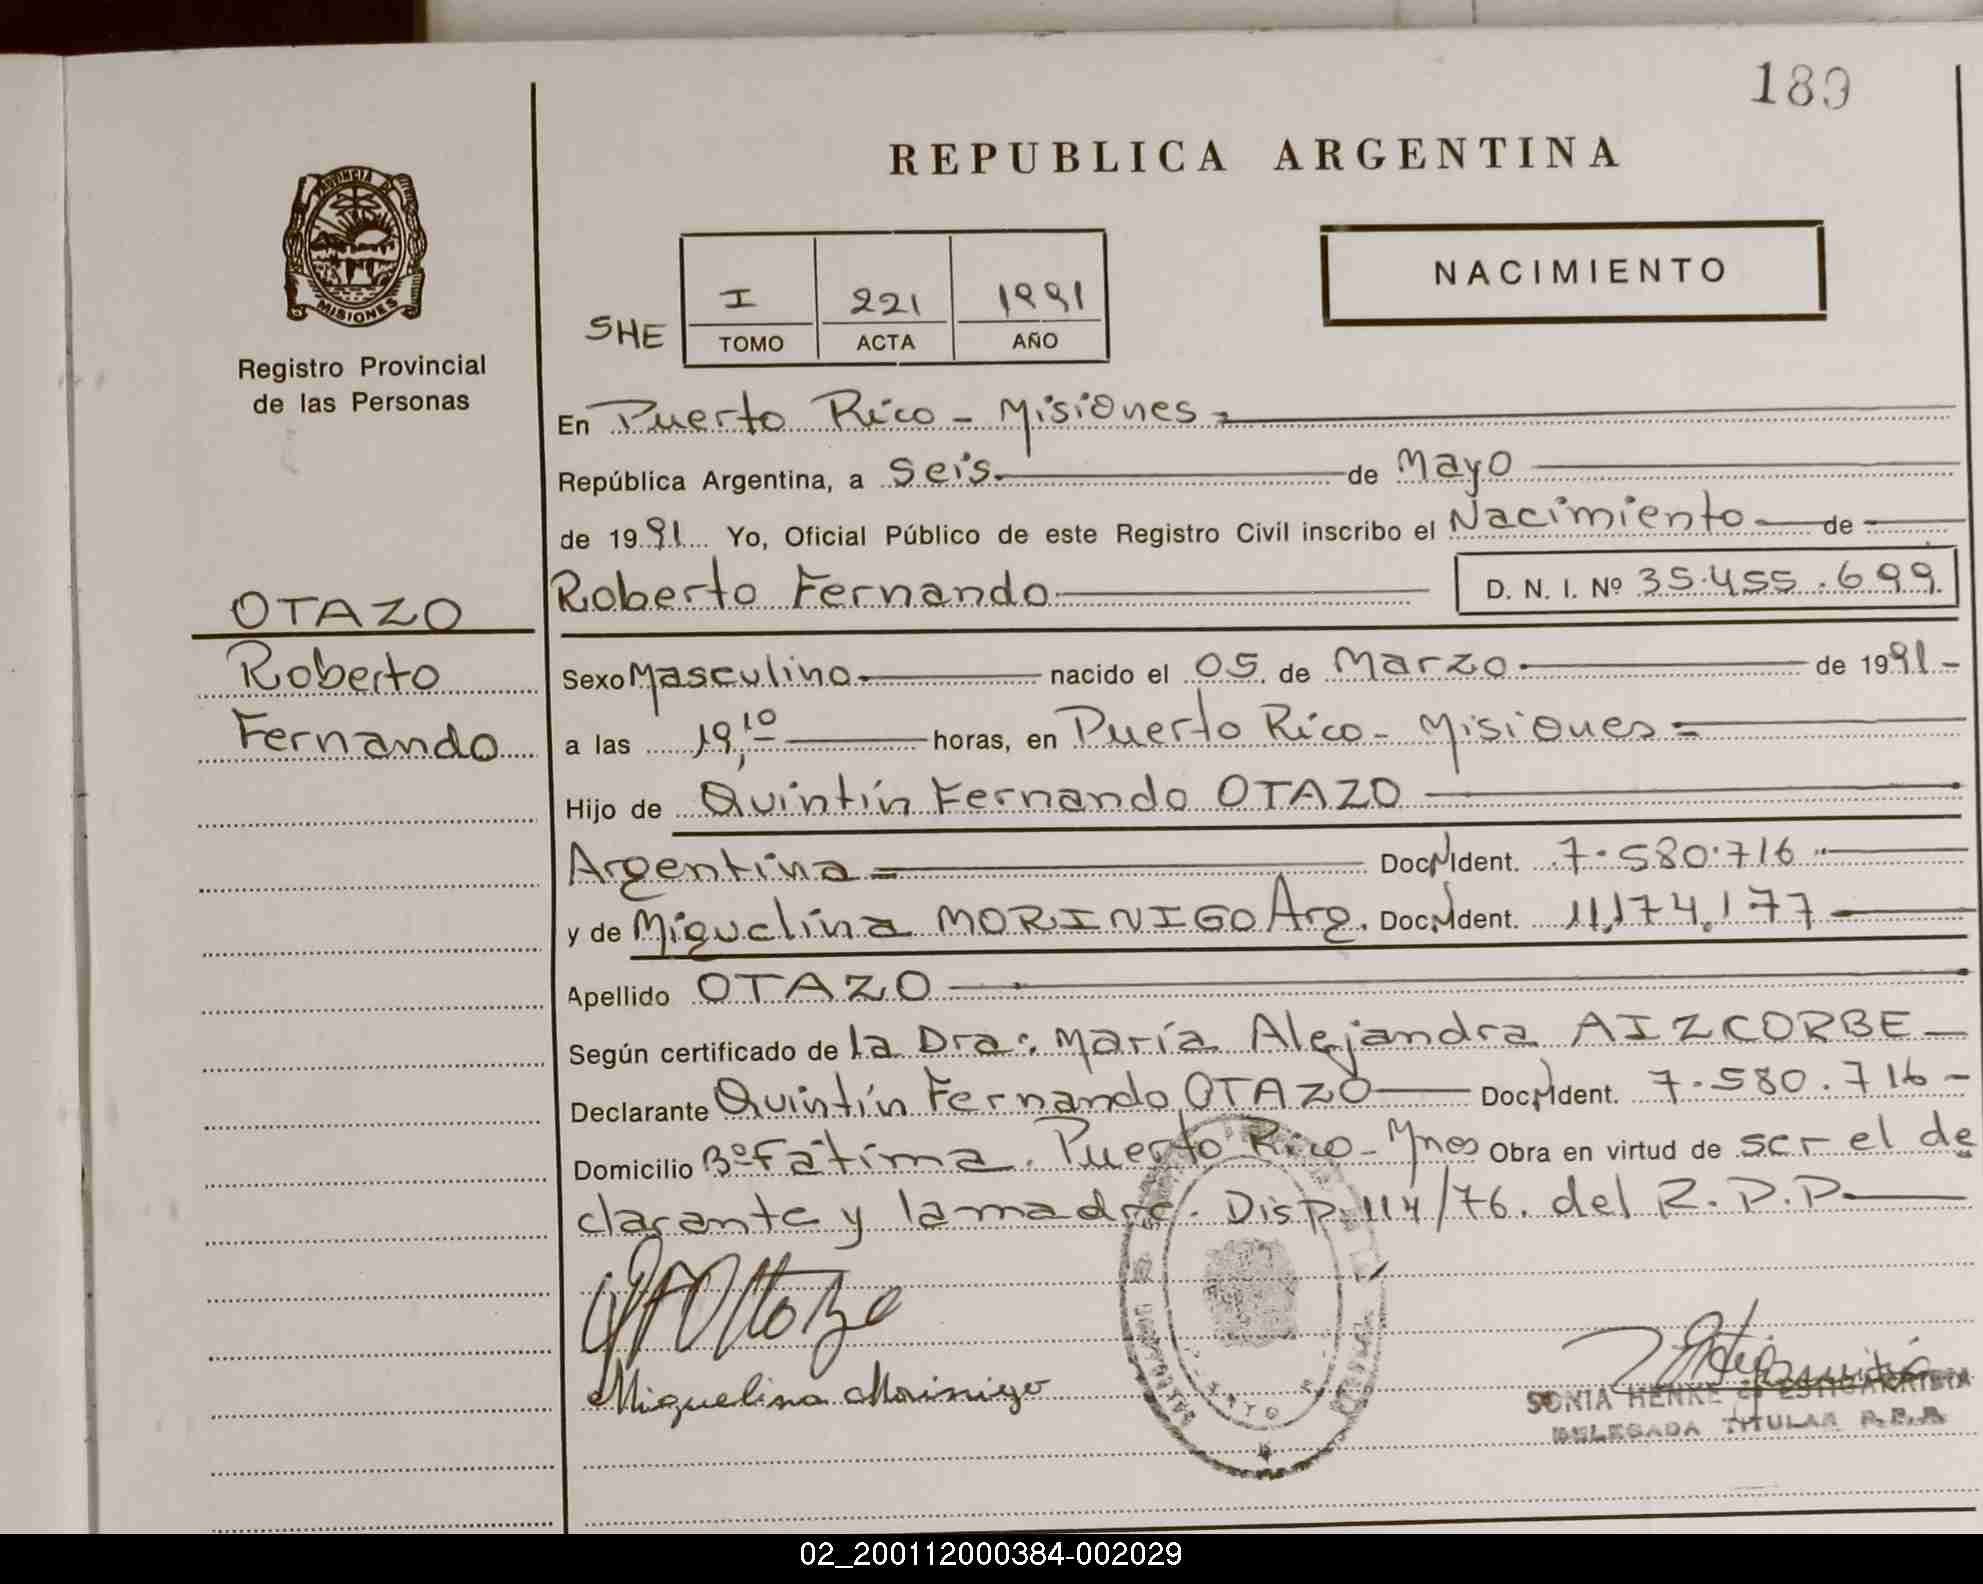 189
REPUBLICA ARGENTINA
PROVINCIA DE
MISIONES
Registro Provincial
de las Personas
NACIMIENTO
SHE
I 221 1991
TOMO ACTA AÑO
En Puerto Rico - Misiones
República Argentina, a seis de Mayo
de 1991 Yo, Oficial Público de este Registro Civil inscribo el Nacimiento de
OTAZO
Roberto
Fernando
Roberto Fernando D. N. I. Nº 35.455.699
Sexo Masculino nacido el 05 de Marzo de 1991-
a las 19,10 horas, en Puerto Rico - Misiones =
Hijo de Quintín Fernando OTAZO
Argentina = Doc. N Ident. 7.580.716
y de Miguelina MORINIGO Arg. Doc. N Ident. 11,174,177
Apellido OTAZO
Según certificado de la Dra: María Alejandra AIZCORBE -
Declarante Quintín Fernando OTAZO Doc. N Ident. 7.580.716 -
Domicilio Bº Fátima. Puerto Rico - Mnes Obra en virtud de ser el de
clarante y la madre. Disp. 114/76. del R.P.P.
Miguelina Morinigo
SONIA HENKE de ESTIGARRIBIA
DELEGADA TITULAR R.P.P.
02_200112000384-002029